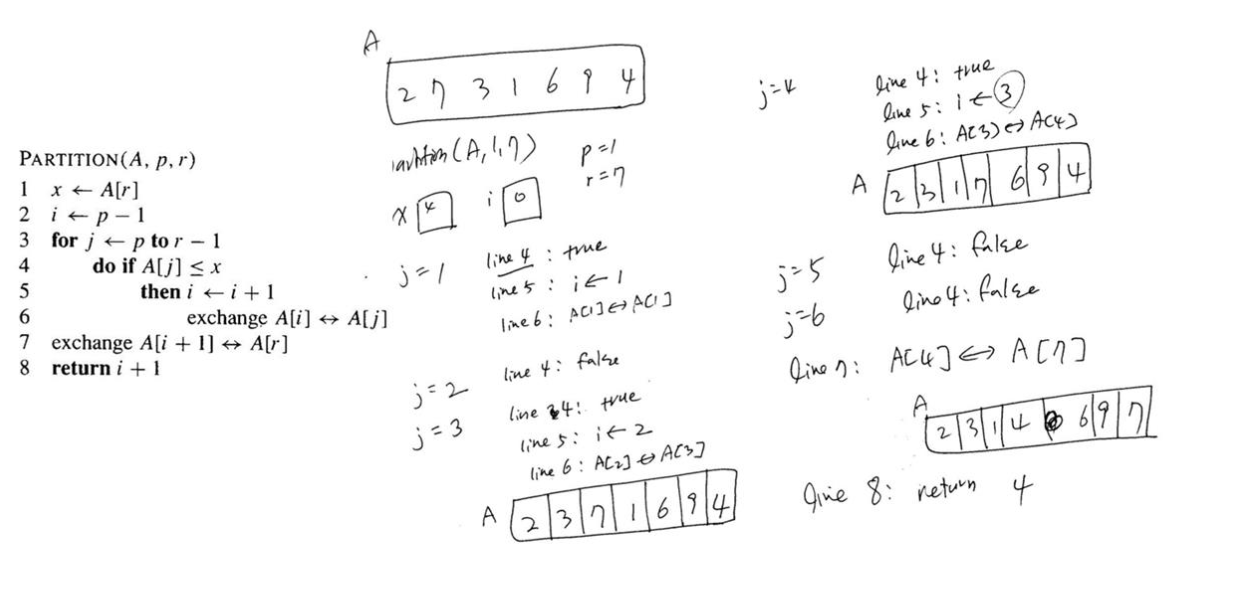 PARTITION(A, p, r)
1 x ← A[r]
2 i ← p − 1
3 for j ← p to r − 1
4 do if A[j] ≤ x
5 then i ← i + 1
6 exchange A[i] ↔ A[j]
7 exchange A[i + 1] ↔ A[r]
8 return i + 1
A
2 7 3 1 6 9 4
(A, 1, 7)
p=1
r=7
x 4 i 0
j=1
line 4 : true
line 5 : i ← 1
line 6 : A[1] ↔ A[1]
j=2 line 4 : false
j=3 line 4 : true
line 5 : i ← 2
line 6 : A[2] ↔ A[3]
A 2 3 7 1 6 9 4
j=4
line 4 : true
line 5 : i ← 3
line 6 : A[3] ↔ A[4]
A 2 3 1 7 6 9 4
j=5 line 4 : false
j=6 line 4 : false
line 7 : A[4] ↔ A[7]
A
2 3 1 4 6 9 7
line 8 : return 4